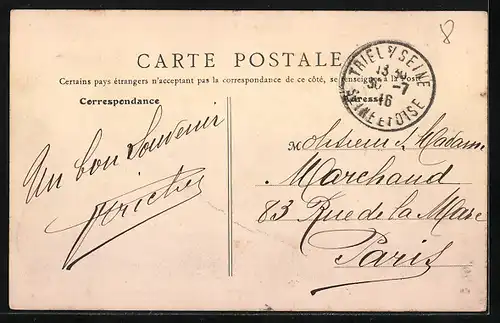 8
CARTE POSTALE
Certains pays étrangers n'acceptant pas la correspondance de ce côté, se renseigner à la Poste
Correspondance
Adresse
TRIEL S/ SEINE
13 30
30 -7
16
SEINE ET OISE
Un bon Souvenir
Monsieur & Madame
Marchand
83 Rue de la Mare
Paris